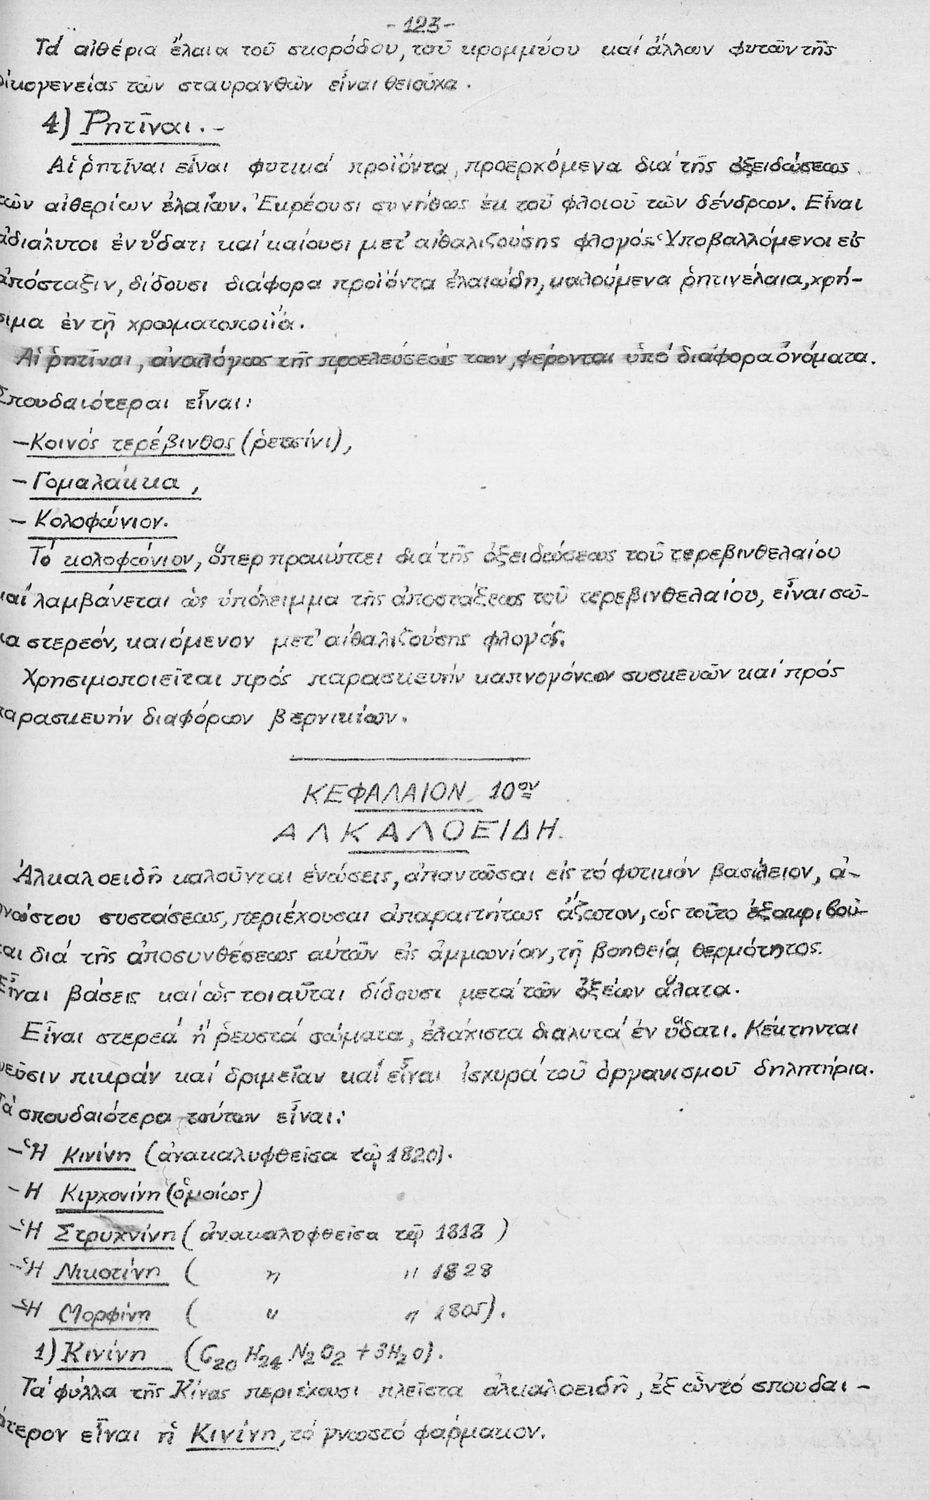 -123-
Τά αἰθέρια ἔλαια τοῦ σκορόδου, τοῦ κρομμύου καί ἄλλων φυτῶν τῆς
οἰκογενείας τῶν σταυρανθῶν εἶναι θειοῦχα.
4) Ρητῖναι.-
Αἱ ρητῖναι εἶναι φυτικά προϊόντα, προερχόμενα διά τῆς ὀξειδώσεως
τῶν αἰθερίων ἐλαίων. Ἐκρέουσι συνήθως ἐκ τοῦ φλοιοῦ τῶν δένδρων. Εἶναι
ἀδιάλυτοι ἐν ὕδατι καί καίουσι μετ' αἰθαλιζούσης φλογός. Ὑποβαλλόμενοι εἰς
ἀπόσταξιν, δίδουσι διάφορα προϊόντα ἐλαιώδη, καλούμενα ῥητινέλαια, χρή-
σιμα ἐν τῇ χρωματοποιΐα.
Αἱ ῥητῖναι, ἀναλόγως τῆς προελεύσεώς των, φέρονται ὑπό διάφορα ὀνόματα.
Σπουδαιότεραι εἶναι:
-Κοινός τερέβινθος (ῥετσίνι),
-Γομαλάκκα,
- Κολοφώνιον.
Τό κολοφώνιον, ὅπερ προκύπτει διά τῆς ὀξειδώσεως τοῦ τερεβινθελαίου
καί λαμβάνεται ὡς ὑπόλειμμα τῆς ἀποστάξεως τοῦ τερεβινθελαίου, εἶναι σῶ-
μα στερεόν, καιόμενον μετ' αἰθαλιζούσης φλογός.
Χρησιμοποιεῖται πρός παρασκευήν καπνογόνων συσκευῶν καί πρός
παρασκευήν διαφόρων βερνικίων.
ΚΕΦΑΛΑΙΟΝ 10ον
ΑΛΚΑΛΟΕΙΔΗ.
Ἀλκαλοειδῆ καλοῦνται ἑνώσεις, ἀπαντῶσαι εἰς τό φυτικόν βασίλειον, ἀ-
γνώστου συστάσεως, περιέχουσαι ἀπαραιτήτως ἄζωτον, ὡς τοῦτο ἐξακριβοῦ-
ται διά τῆς ἀποσυνθέσεως αὐτῶν εἰς ἀμμωνίαν, τῇ βοηθείᾳ θερμότητος.
Εἶναι βάσεις καί ὡς τοιαῦται δίδουσι μετά τῶν ὀξέων ἅλατα.
Εἶναι στερεά ἤ ῥευστά σώματα, ἐλάχιστα διαλυτά ἐν ὕδατι. Κέκτηνται
γεῦσιν πικράν καί δριμεῖαν καί εἶναι ἰσχυρά τοῦ ὀργανισμοῦ δηλητήρια.
Τά σπουδαιότερα τούτων εἶναι:
-Ἡ Κινίνη (ἀνακαλυφθεῖσα τῷ 1820).
-Ἡ Κιγχονίνη (ὁμοίως)
-Ἡ Στρυχνίνη (ἀνακαλυφθεῖσα τῷ 1818)
-Ἡ Νικοτίνη ( " " 1828
-Ἡ Μορφίνη ( " " 1805).
1) Κινίνη (C20 H24 N2 O2 + 3H2O).
Τά φύλλα τῆς Κίνας περιέχουσι πλεῖστα ἀλκαλοειδῆ, ἐξ ὧν τό σπουδαι-
ότερον εἶναι ἡ Κινίνη, τό γνωστό φάρμακον.